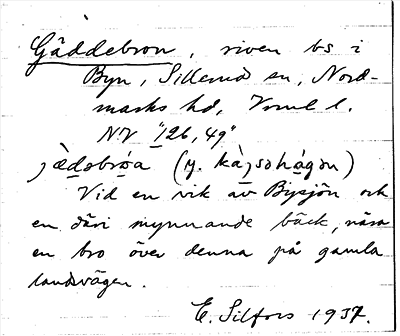 Gäddebron, riven bs i
Byn, Sillerud sn, Nord-
marks hd, Vrml l.
NV "126, 49"
jæ̀dəbrøa (y. kàjsəhágən)
Vid en vik av Bysjön och
en däri mynnande bäck, nära
en bro över denna på gamla
landsvägen.
E. Silfors 1937.